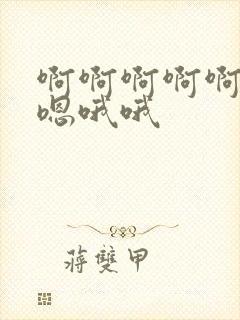 啊啊啊啊啊
嗯哦哦
蒋雙甲